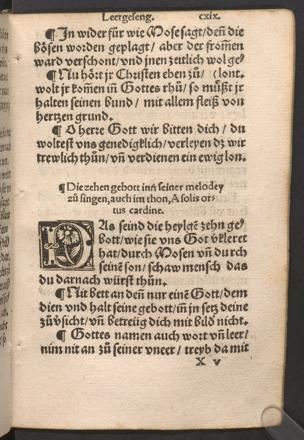 Leergeseng. cxix.
¶ In wider für wie Mose sagt/ deñ die
bösen worden geplagt/ aber der from̃en
ward verschont/ vnd jnen zeitlich wol ge/
¶ Nu hört jr Christen eben zů/ (lont.
wolt jr kom̃en in Gottes rhů/ so můßt jr
halten seinen bund/ mit allem fleiß von
hertzen grund.
¶ O herre Gott wir bitten dich/ du
woltest vns genedigklich/ verleyen dz wir
trewlich thůn/ vñ verdienen ein ewig lon.
¶ Die zehen gebott inn seiner melodey
zů singen, auch im thon, A solis or-
tus cardine.
DAs seind die heylgẽ zehn ge/
bott/ wie sie vns Got ꝟkleret
hat/ durch Mosen vñ durch
seinẽ son/ schaw mensch das
du darnach würst thůn.
¶ Nit bett an deñ nur einẽ Gott/ dem
dien vnd halt seine gebott/ iñ jn setz deine
zůꝟsicht/ vñ betreüg dich mit bild nicht.
¶ Gottes namen auch wort vñ leer/
nim nit an zů seiner vneer/ treyb da mit
X v